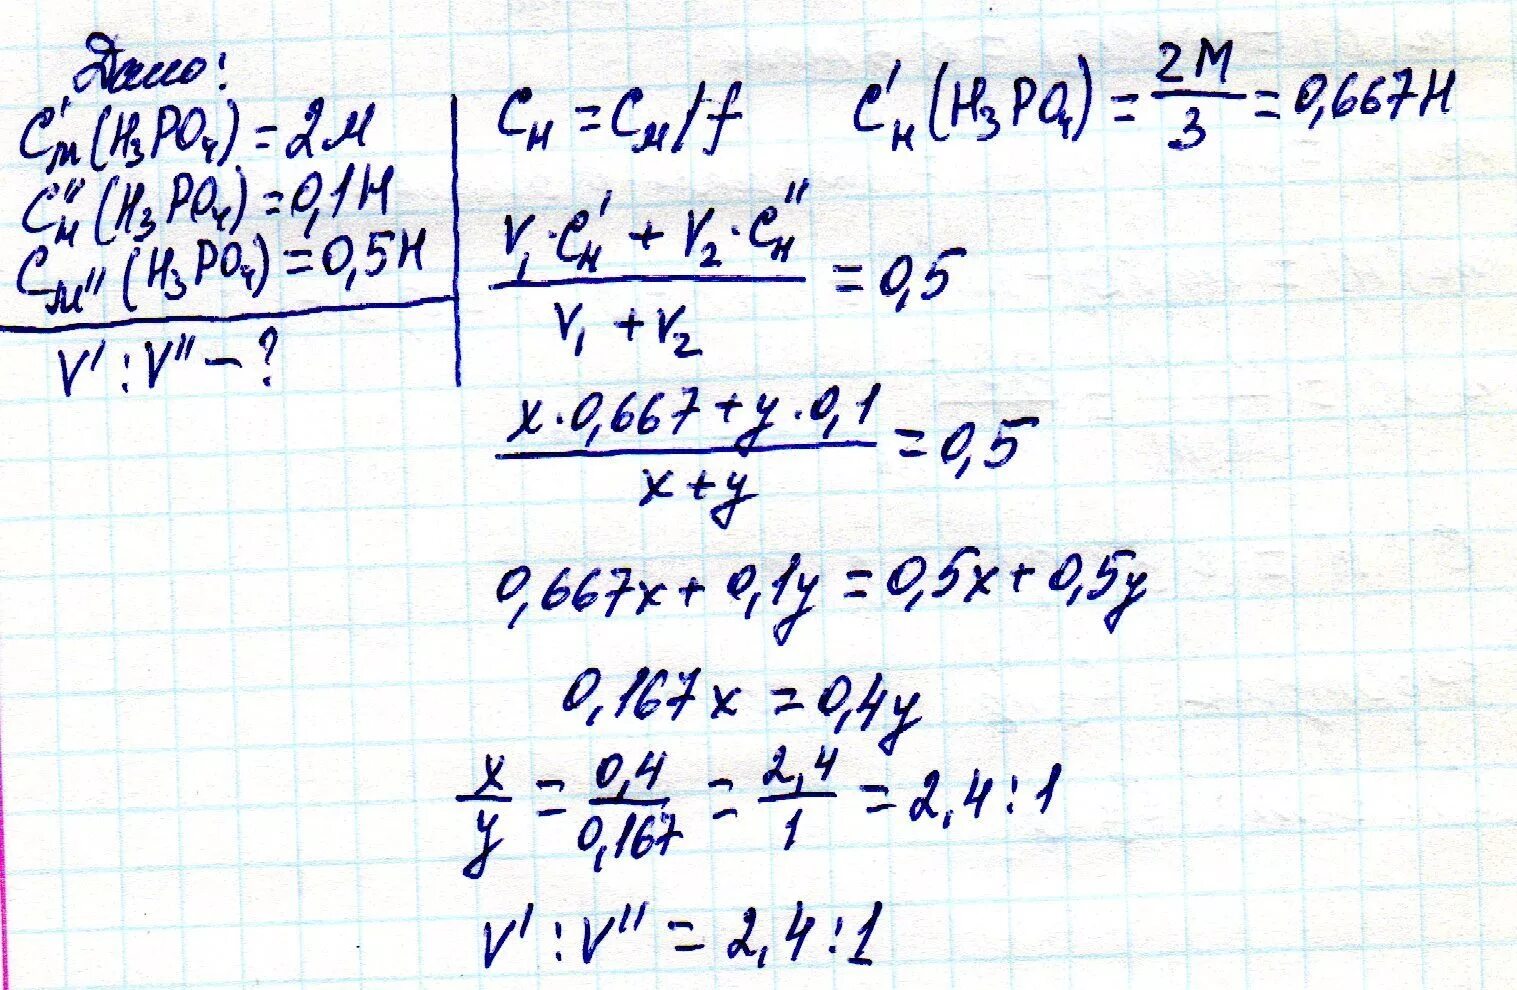 Дано:
C'м(H₃PO₄) = 2М
C''н(H₃PO₄) = 0,1Н
Cм''(H₃PO₄) = 0,5Н
V' : V'' – ?
Cн = Cм/f
C'н(H₃PO₄) = 2М/3 = 0,667Н
(V₁·C'н + V₂·C''н)/(V₁ + V₂) = 0,5
(x·0,667 + y·0,1)/(x + y) = 0,5
0,667x + 0,1y = 0,5x + 0,5y
0,167x = 0,4y
x/y = 0,4/0,167 = 2,4/1 = 2,4 : 1
V' : V'' = 2,4 : 1